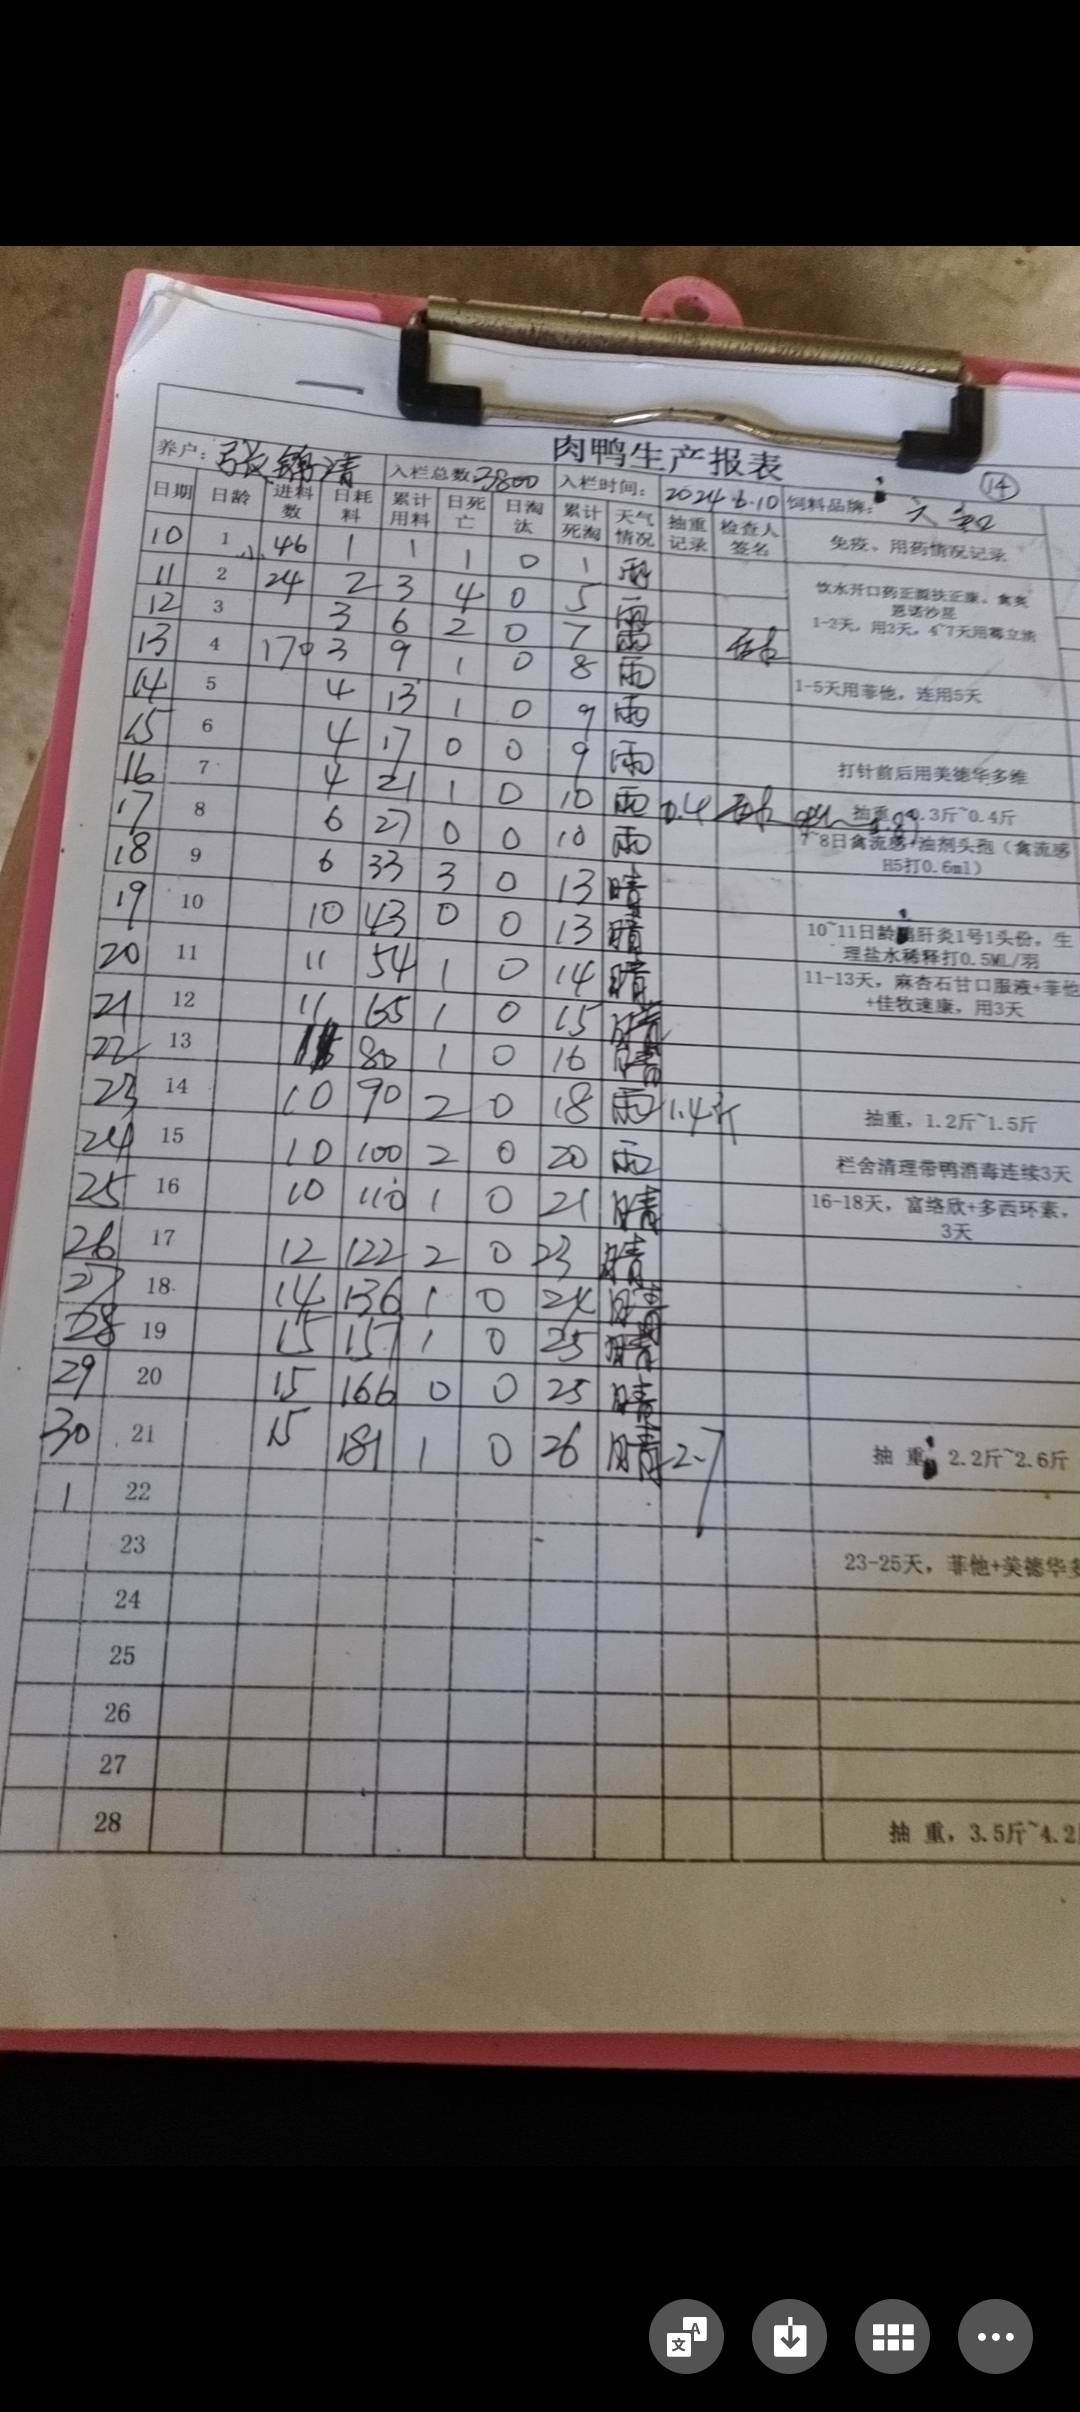 肉鸭生产报表
14
养户：张锦清 入栏总数:3800 入栏时间：2024.6.10 饲料品牌：六和
日期 日龄 进料数 日耗料 累计用料 日死亡 日淘汰 累计死淘 天气情况 抽重记录 检查人签名 免疫、用药情况记录
10 1 小 46 1 1 1 0 1 雨
11 2 24 2 3 4 0 5 雨 饮水开口药
1-2天，用2天，4~7天用霉立清
12 3 3 6 2 0 7 雨
13 4 170 3 9 1 0 8 雨
14 5 4 13 1 0 9 雨 1-5天用菲他，连用5天
15 6 4 17 0 0 9 雨
16 7 4 21 1 0 10 雨 0.4 打针前后用美德华多维
17 8 6 27 0 0 10 雨 抽重，0.3斤~0.4斤
18 9 6 33 3 0 13 晴 7~8日禽流感+油剂头孢（禽流感H5打0.6ml）
19 10 10 43 0 0 13 晴
20 11 11 54 1 0 14 晴 10~11日龄鸭肝炎1号1头份，生理盐水稀释打0.5ML/羽
21 12 11 65 1 0 15 晴 11-13天，麻杏石甘口服液+菲他+佳牧速康，用3天
22 13 15 80 1 0 16 晴
23 14 10 90 2 0 18 雨 1.4斤 抽重，1.2斤~1.5斤
24 15 10 100 2 0 20 雨 栏舍清理带鸭消毒连续3天
25 16 10 110 1 0 21 晴 16-18天，富络欣+多西环素，3天
26 17 12 122 2 0 23 晴
27 18 14 136 1 0 24 晴
28 19 15 151 1 0 25 晴
29 20 15 166 0 0 25 晴
30 21 15 181 1 0 26 晴 2.7 抽重，2.2斤~2.6斤
1 22
23 23-25天，菲他+美德华多
24
25
26
27
28 抽重，3.5斤~4.2